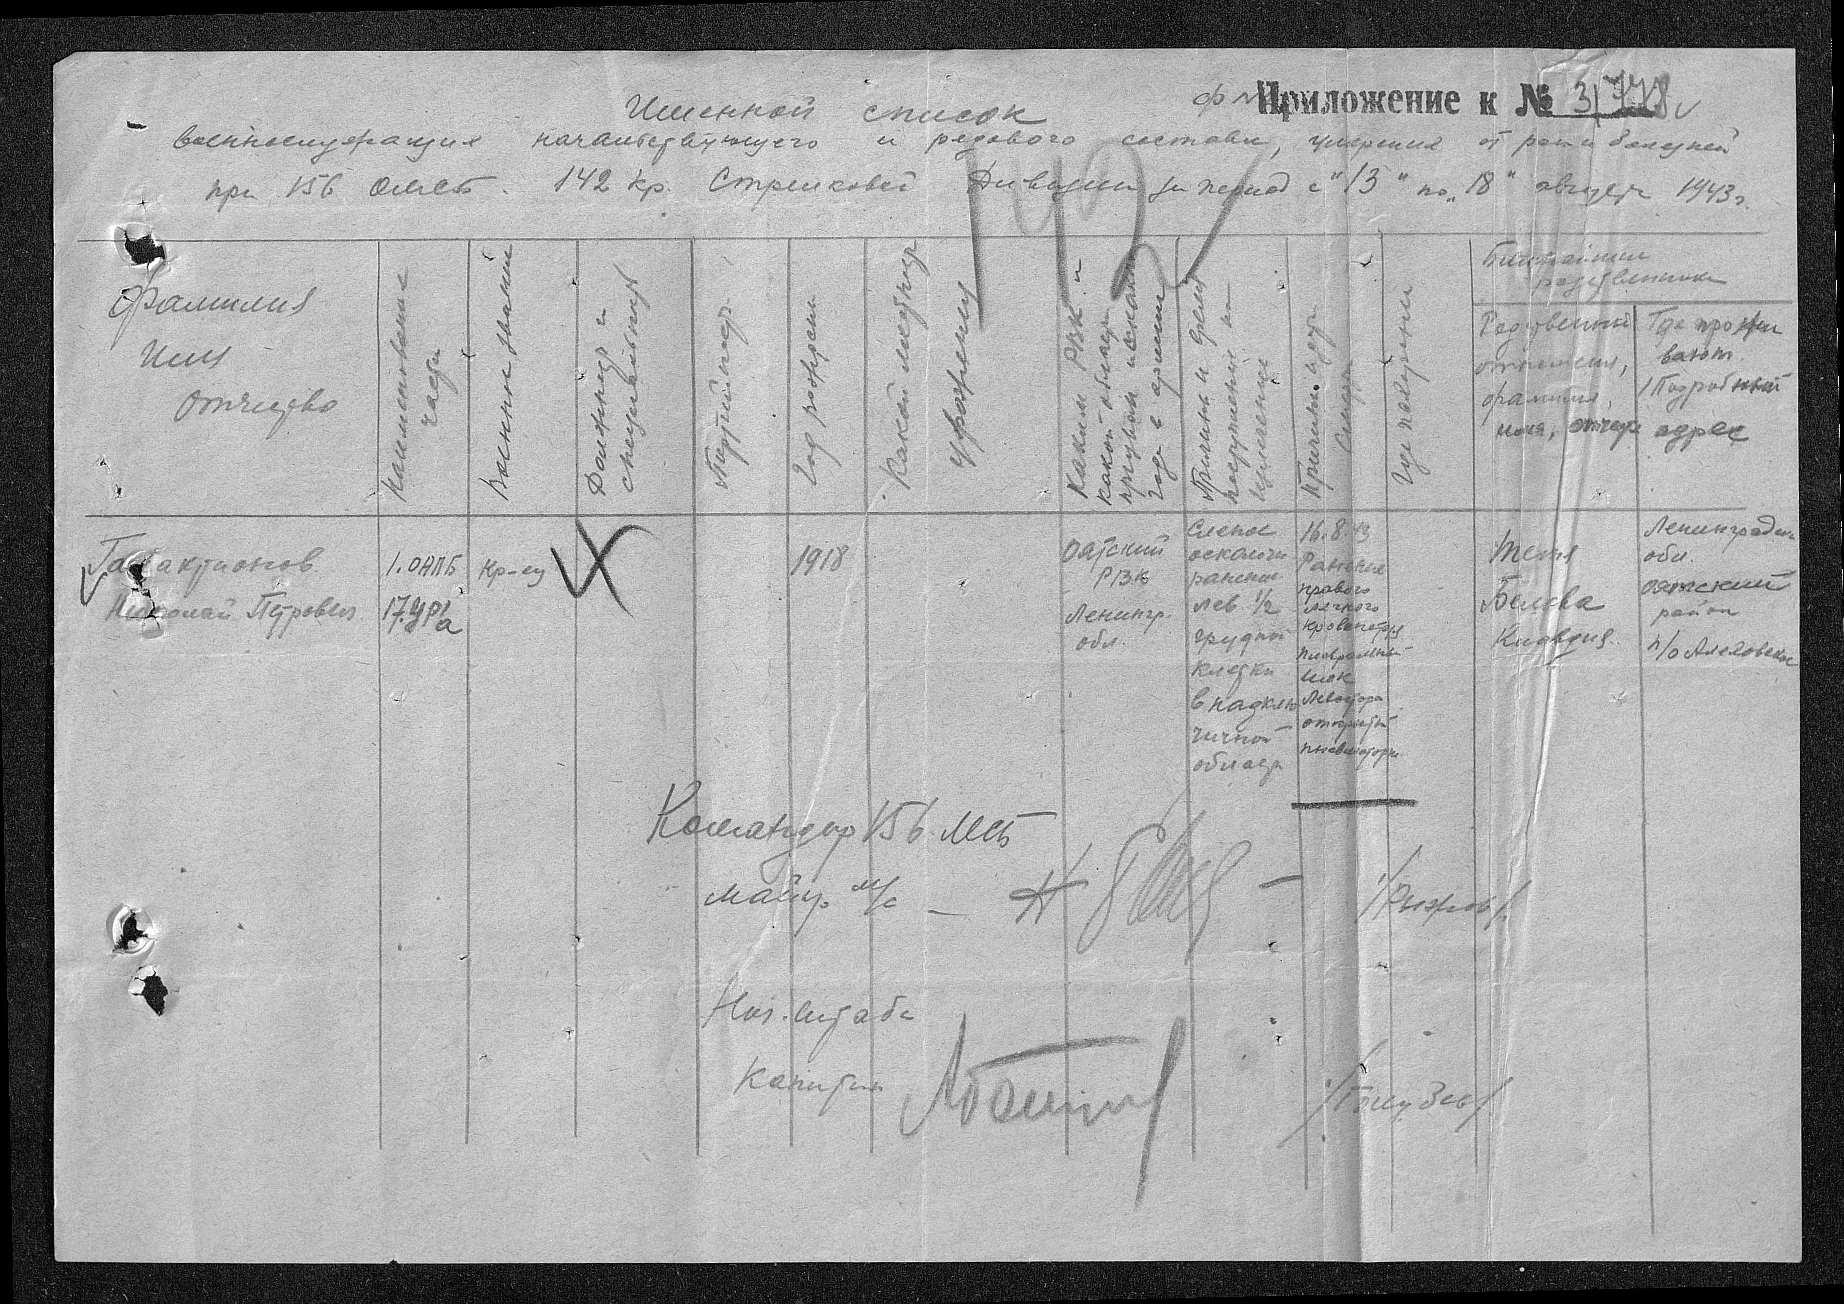 Приложение к № 31778
Именной список
военнослужащих начальствующего и рядового состава, умерших от ран и болезней
при 156 ОМСБ. 142 кр. Стрелковой Дивизии за период с "13" по "18" августа 1943 г.
142
Фамилия
Имя
Отчество
Наименование
части
Военное звание
Должность и
специальность
Партийность
Год рождения
Какой местности
уроженец
Каким РВК и
какой области
призван и с какого
года в армии
Причины и время
поступления на
излечение
Причины и дата
смерти
Где похоронен
Ближайшие
родственники
Родственные
отношения,
фамилия,
имя, отчеств
Где прожи
вают
/Подробный
адрес
Галактионов
Николай Петрович
1.ОАПБ
17.УРа
Кр-ец
1918
Оятский
РВК
Ленингр.
обл.
Слепое
осколочн
ранение
лев. 1/2
грудной
клетки
в надклю
чичной
области
16.8.43
Ранение
правого
легочного
кровопотеря
плевральный
шок
открытый
пневмоторк
Жена
Белова
Клавдия
Ленинградск
обл.
Оятский
район
п/о Алеховское
Командир 156 МСБ
майор м/с
/Рыжков/
Нач. штаба
Капитан